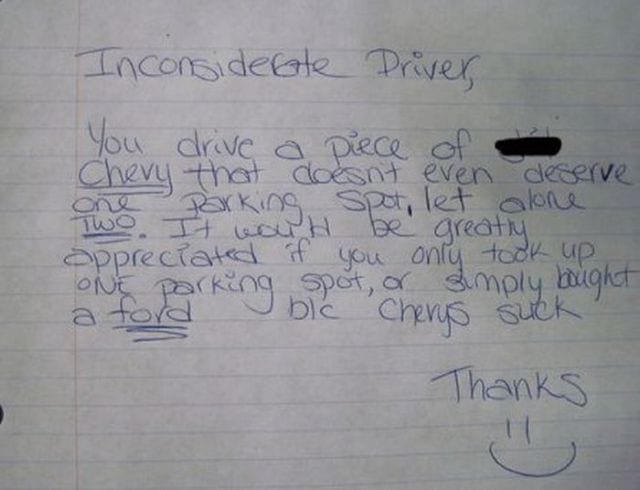 Inconsiderate Driver,
You drive a piece of
Chevy that doesnt even deserve
one parking spot, let alone
TWO. It would be greatly
appreciated if you only took up
ONE parking spot, or simply bought
a ford b/c Chevys suck
Thanks